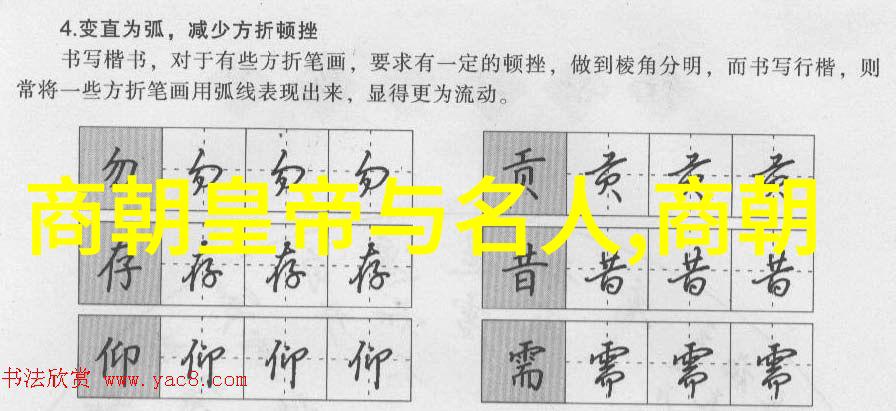 4.变直为弧，减少方折顿挫
书写楷书，对于有些方折笔画，要求有一定的顿挫，做到棱角分明，而书写行楷，则
常将一些方折笔画用弧线表现出来，显得更为流动。
勿 勿 勿 勿
贡 贡 贡 贡
商朝皇帝与名人,商朝
存 存 存 存
昔 昔 昔 昔
仰 仰 仰 仰
需 需 需 需
书法欣赏 www.yac8.com